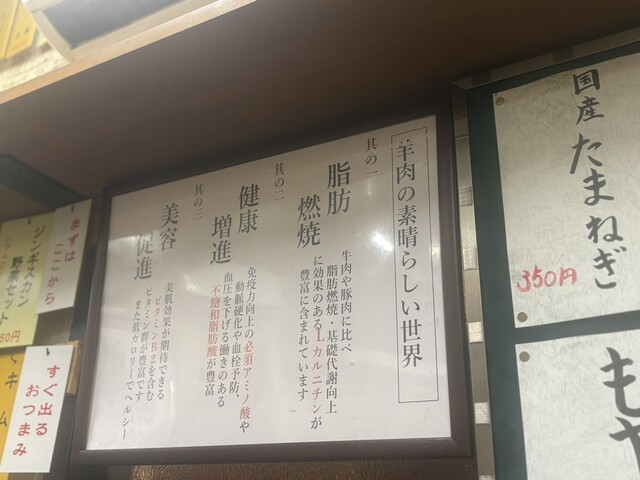 国産たまねぎ
350円
もや
羊肉の素晴らしい世界
其の一
脂肪
燃焼
牛肉や豚肉に比べ
脂肪燃焼・基礎代謝向上
に効果のあるLカルニチンが
豊富に含まれています
其の二
健康
増進
免疫力向上の必須アミノ酸や
動脈硬化や血栓予防、
血圧を下げる働きのある
不飽和脂肪酸が豊富
其の三
美容
促進
美肌効果が期待できる
を含む
ビタミン群が豊富です
また低カロリーでヘルシー
まずは
ここから
ジンギスカン
野菜セット
50円
すぐ出る
おつまみ
キ
ム